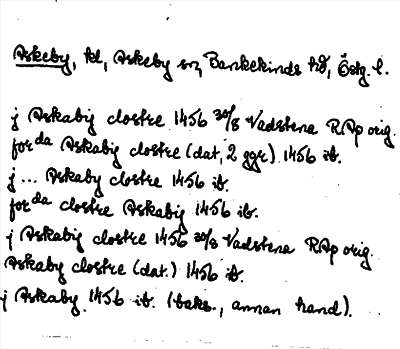 Askeby, kl, Askeby sn, Bankekinds hd, Östg. l.
j Askabij clostre 1456 30/8 Vadstena RAp orig.
for da Askabij clostre (dat, 2 ggr) 1456 ib.
j... Askaby clostre 1456 ib.
for da clostre Askabij 1456 ib.
j Askabij clostre 1456 30/8 Vadstena RAp orig.
Askaby clostre (dat.) 1456 ib.
j Askaby 1456 ib. (baks., annan hand).